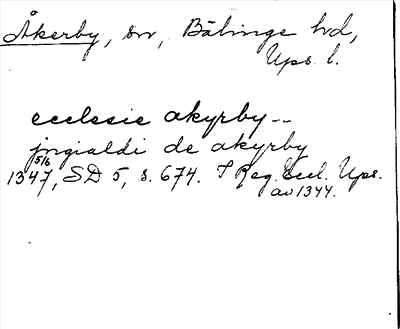 Åkerby, sn, Bälinge hd,
Ups. l.
ecclesie akyrby--
jngialdi de akyrby
5/6
1347, SD 5, s. 674. I Reg. Eccl. Ups.
av 1344.